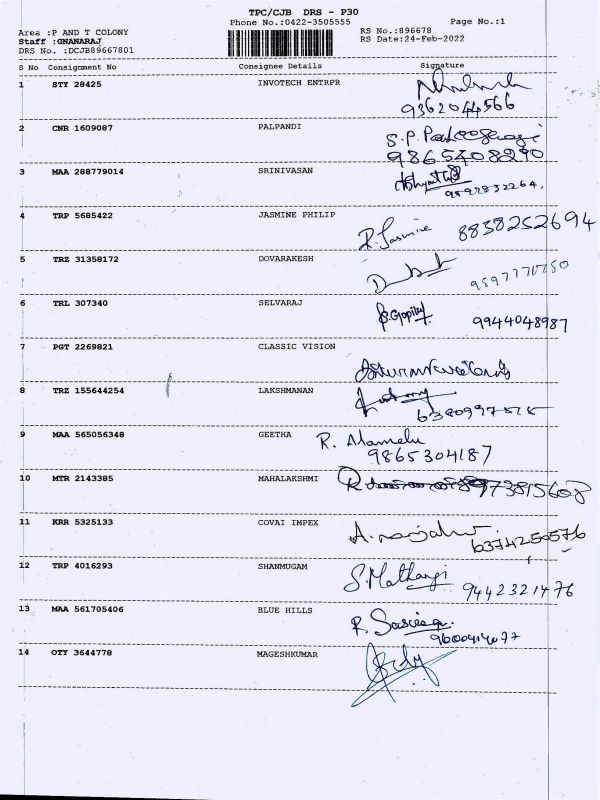 TPC/CJB DRS - P30
Phone No.:0422-3505555
Page No.:1
Area :P AND T COLONY
Staff :GNANARAJ
DRS No. :DCJB89667801
RS No.:896678
RS Date:24-Feb-2022
S No Consignment No Consignee Details Signature
1 STY 28425 INVOTECH ENTRPR
9362044566
2 CNR 1609087 PALPANDI
S.P.
9865408290
3 MAA 288779014 SRINIVASAN
4 TRP 5685422 JASMINE PHILIP
R. Jasmine 8838252694
5 TRZ 31358172 DOVARAKESH
6 TRL 307340 SELVARAJ
9944048987
7 PGT 2269821 CLASSIC VISION
8 TRZ 155644254 LAKSHMANAN
9 MAA 565056348 GEETHA
R. Alamelu
9865304187
10 MTR 2143385 MAHALAKSHMI
11 KRR 5325133 COVAI IMPEX
6374250576
12 TRP 4016293 SHANMUGAM
S. Mathangi 9442321476
13 MAA 561705406 BLUE HILLS
14 OTY 3644778 MAGESHKUMAR